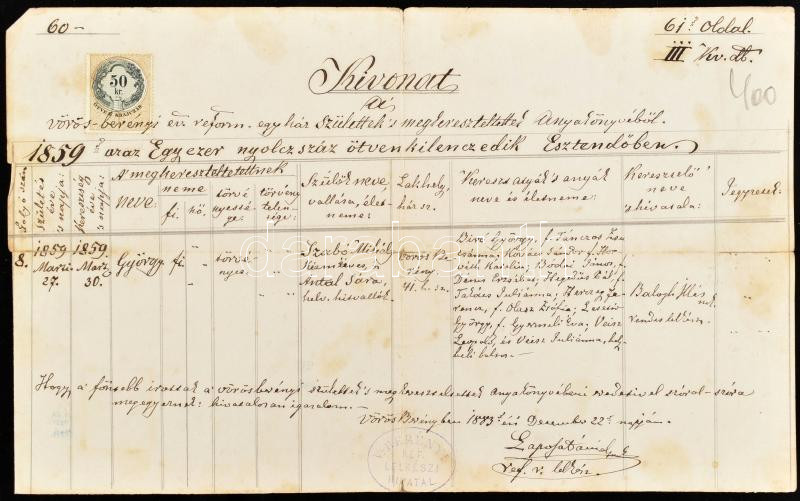 60-
61ⁱᵏ Oldal.
III Kv. db.
50
kr.
ÖTVEN KRAJCZÁR
400
Kivonat
a
vörös-berényi ev. reform. egyház Születtek 's megkereszteltettek Anyakönyvéből.
1859 azaz Egyezer nyolczszáz ötvenkilenczedik Esztendőben.
Folyó szám
születés éve 's napja:
keresztség éve 's napja:
A megkereszteltetteknek
neve:
neme
fi.
nő.
törvényessége:
törvénytelensége:
Szülők neve, vallása, életneme:
Lakhely, ház sz.
Kereszt atyák 's anyák neve és életneme:
Keresztelő neve 's hivatala:
Jegyzések:
8.
1859 Marzi. 27.
1859 Marz. 30.
György
fi
törvényes.
Szabó Mihály
Antal Sára,
helv. hitvallók.
Vörös Berény 41. h. sz.
Biró György, f. Tánczos Zsuzsánna; Kovács Sándor f. Horváth Karolin; Bodni János, f.
Dénes Erzsébet; Hegedüs Pál f.
Takács Juliánna; Herczeg Ferencz, f. Olasz Zsófia;
György, f. Gyarmati Éva; Veisz
Leopold, és Veisz Juliánna, hely
béli
Balogh Illés
rendes lelkész.
Hogy a föntebb irottak a vörösberényi születtek 's megkereszteltettek anyakönyvében eredetivel szóról-szóra
megegyeznek: hivatalosan igazolom.-
Vörös Berényben 1883 évi December 22ⁿ napján.
V. BERÉNYI
REF.
LELKÉSZI
HIVATAL
ref. v. lelkész.
darabanth